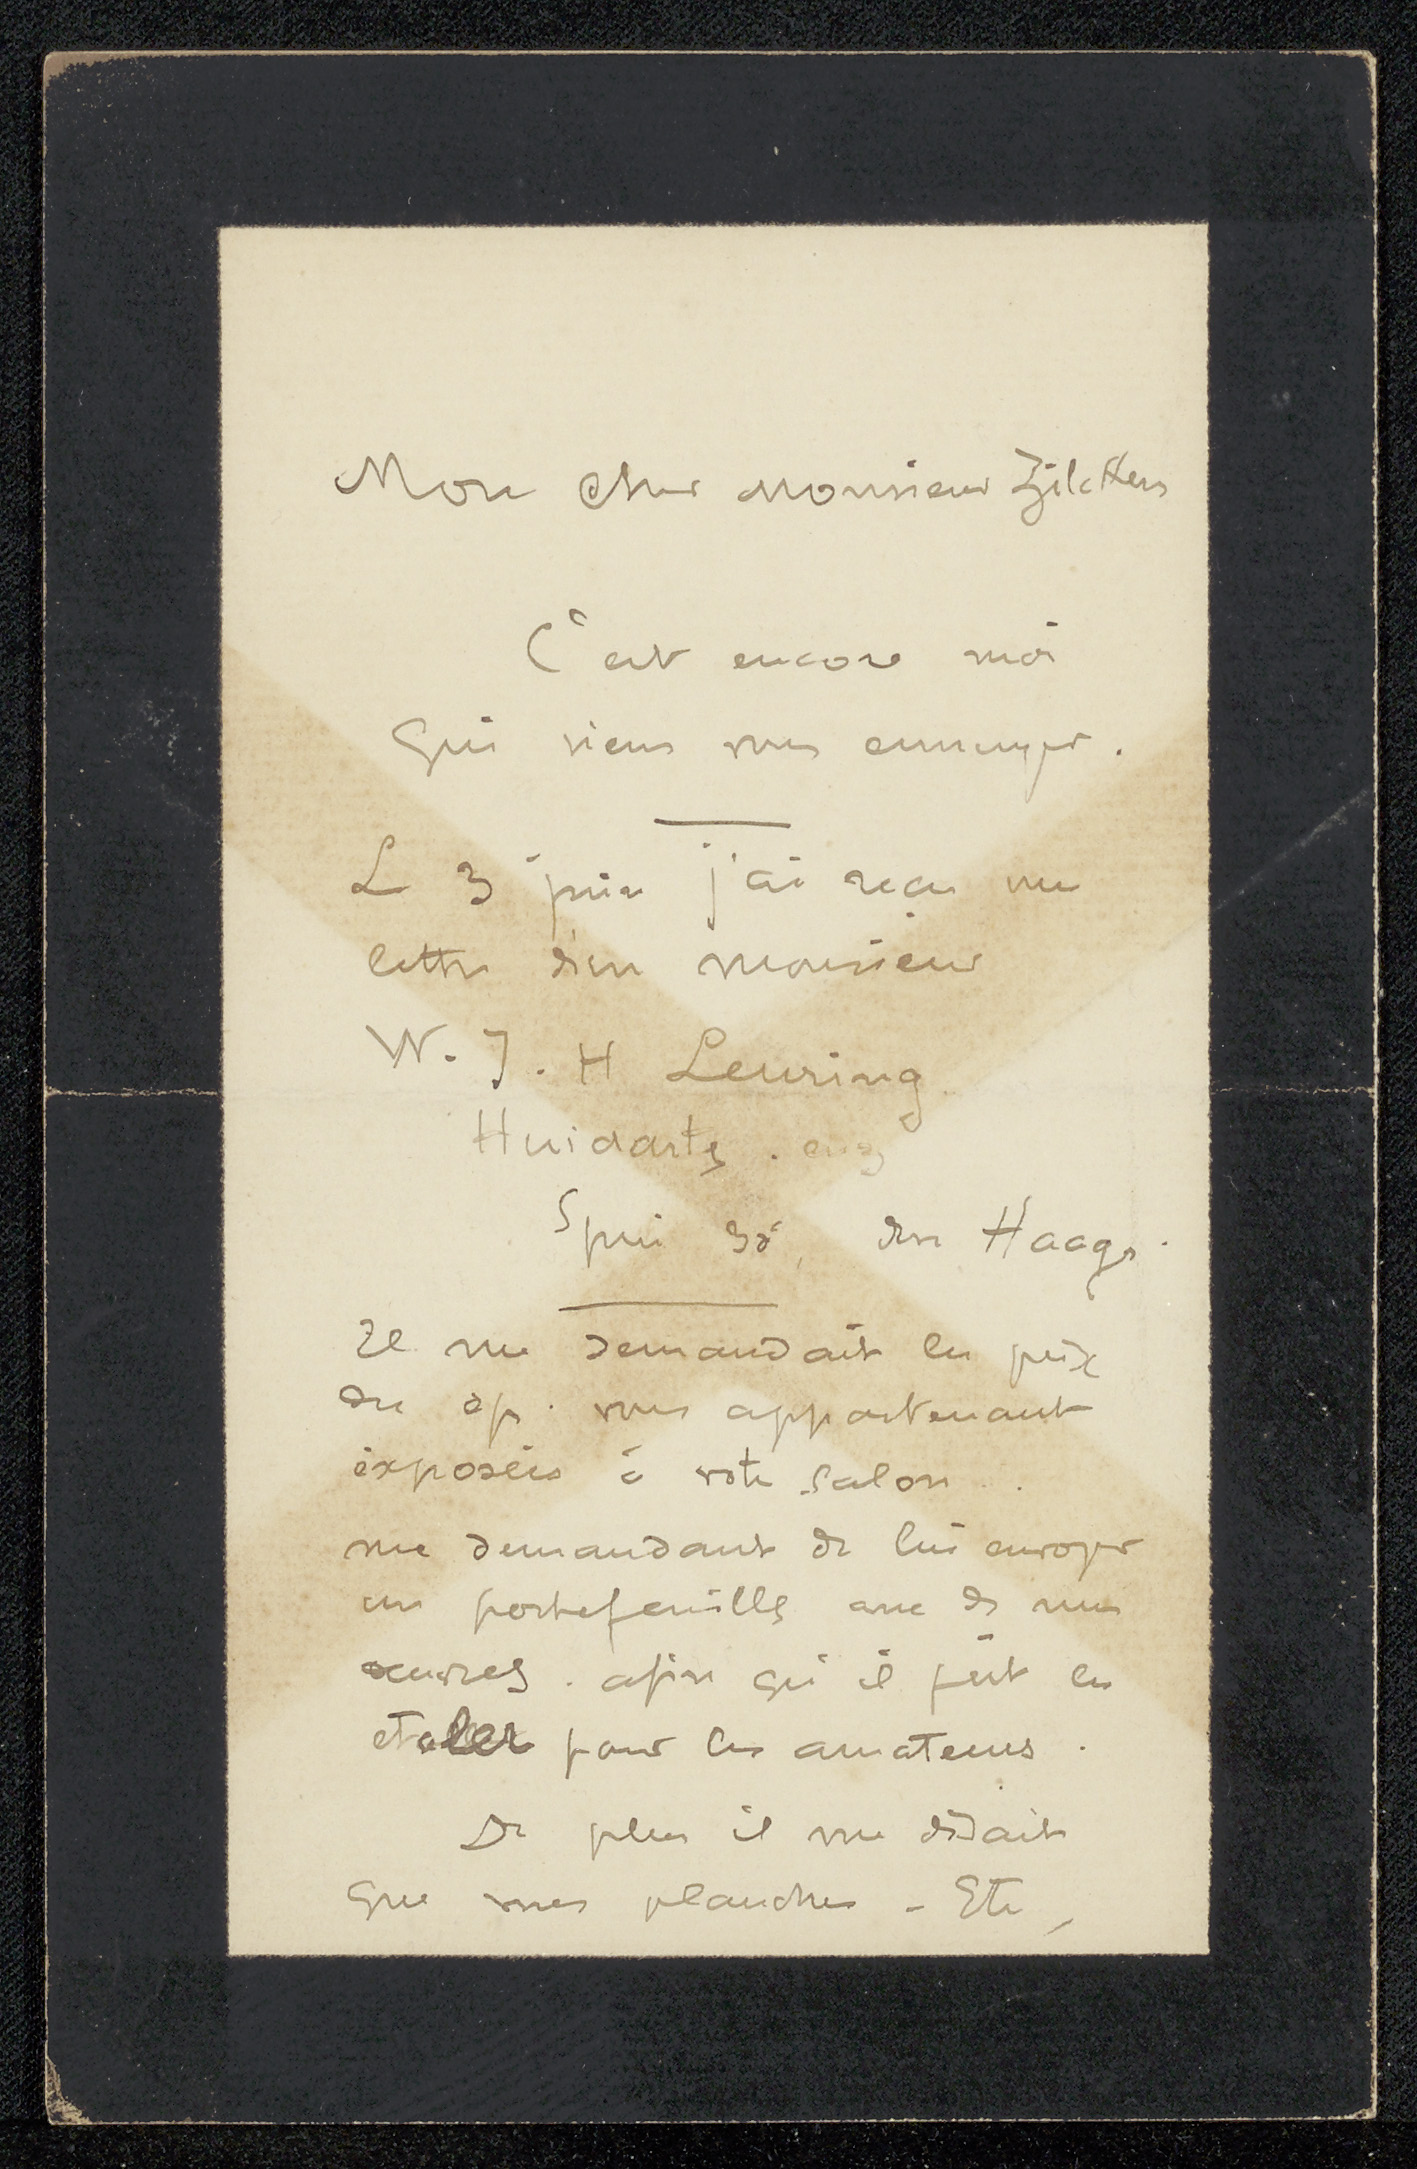 Mon cher monsieur Zilcken
C'est encore moi
qui viens vous ennuyer.
Le 3 juin j'ai reçu une
lettre d'un monsieur
W. J. H Leuring
Huidarts.
Spui den Haage.
Il me demandait les prix
des ep. vous appartenant
exposées à votre salon.
me demandant de lui envoyer
un portefeuille avec de mes
œuvres. afin qu'il put les
etaler pour les amateurs.
De plus il me disait
que mes planches - Etc,